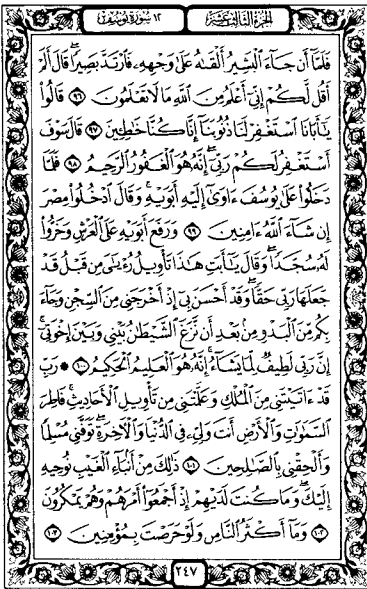 ١٢ سورة يوسف
الجزء الثالث عشر
فَلَمَّآ أَن جَآءَ ٱلْبَشِيرُ أَلْقَىٰهُ عَلَىٰ وَجْهِهِۦ فَٱرْتَدَّ بَصِيرًا ۖ قَالَ أَلَمْ
أَقُل لَّكُمْ إِنِّىٓ أَعْلَمُ مِنَ ٱللَّهِ مَا لَا تَعْلَمُونَ ۝٩٦ قَالُوا۟
يَٰٓأَبَانَا ٱسْتَغْفِرْ لَنَا ذُنُوبَنَآ إِنَّا كُنَّا خَٰطِـِٔينَ ۝٩٧ قَالَ سَوْفَ
أَسْتَغْفِرُ لَكُمْ رَبِّىٓ ۖ إِنَّهُۥ هُوَ ٱلْغَفُورُ ٱلرَّحِيمُ ۝٩٨ فَلَمَّا
دَخَلُوا۟ عَلَىٰ يُوسُفَ ءَاوَىٰٓ إِلَيْهِ أَبَوَيْهِ وَقَالَ ٱدْخُلُوا۟ مِصْرَ
إِن شَآءَ ٱللَّهُ ءَامِنِينَ ۝٩٩ وَرَفَعَ أَبَوَيْهِ عَلَى ٱلْعَرْشِ وَخَرُّوا۟
لَهُۥ سُجَّدًا ۖ وَقَالَ يَٰٓأَبَتِ هَٰذَا تَأْوِيلُ رُءْيَٰىَ مِن قَبْلُ قَدْ
جَعَلَهَا رَبِّى حَقًّا ۖ وَقَدْ أَحْسَنَ بِىٓ إِذْ أَخْرَجَنِى مِنَ ٱلسِّجْنِ وَجَآءَ
بِكُم مِّنَ ٱلْبَدْوِ مِنۢ بَعْدِ أَن نَّزَغَ ٱلشَّيْطَٰنُ بَيْنِى وَبَيْنَ إِخْوَتِىٓ ۚ
إِنَّ رَبِّى لَطِيفٌ لِّمَا يَشَآءُ ۚ إِنَّهُۥ هُوَ ٱلْعَلِيمُ ٱلْحَكِيمُ ۝١٠٠ * رَبِّ
قَدْ ءَاتَيْتَنِى مِنَ ٱلْمُلْكِ وَعَلَّمْتَنِى مِن تَأْوِيلِ ٱلْأَحَادِيثِ ۚ فَاطِرَ
ٱلسَّمَٰوَٰتِ وَٱلْأَرْضِ أَنتَ وَلِىِّۦ فِى ٱلدُّنْيَا وَٱلْءَاخِرَةِ ۖ تَوَفَّنِى مُسْلِمًا
وَأَلْحِقْنِى بِٱلصَّٰلِحِينَ ۝١٠١ ذَٰلِكَ مِنْ أَنۢبَآءِ ٱلْغَيْبِ نُوحِيهِ
إِلَيْكَ ۖ وَمَا كُنتَ لَدَيْهِمْ إِذْ أَجْمَعُوٓا۟ أَمْرَهُمْ وَهُمْ يَمْكُرُونَ
۝١٠٢ وَمَآ أَكْثَرُ ٱلنَّاسِ وَلَوْ حَرَصْتَ بِمُؤْمِنِينَ ۝١٠٣
٢٤٧